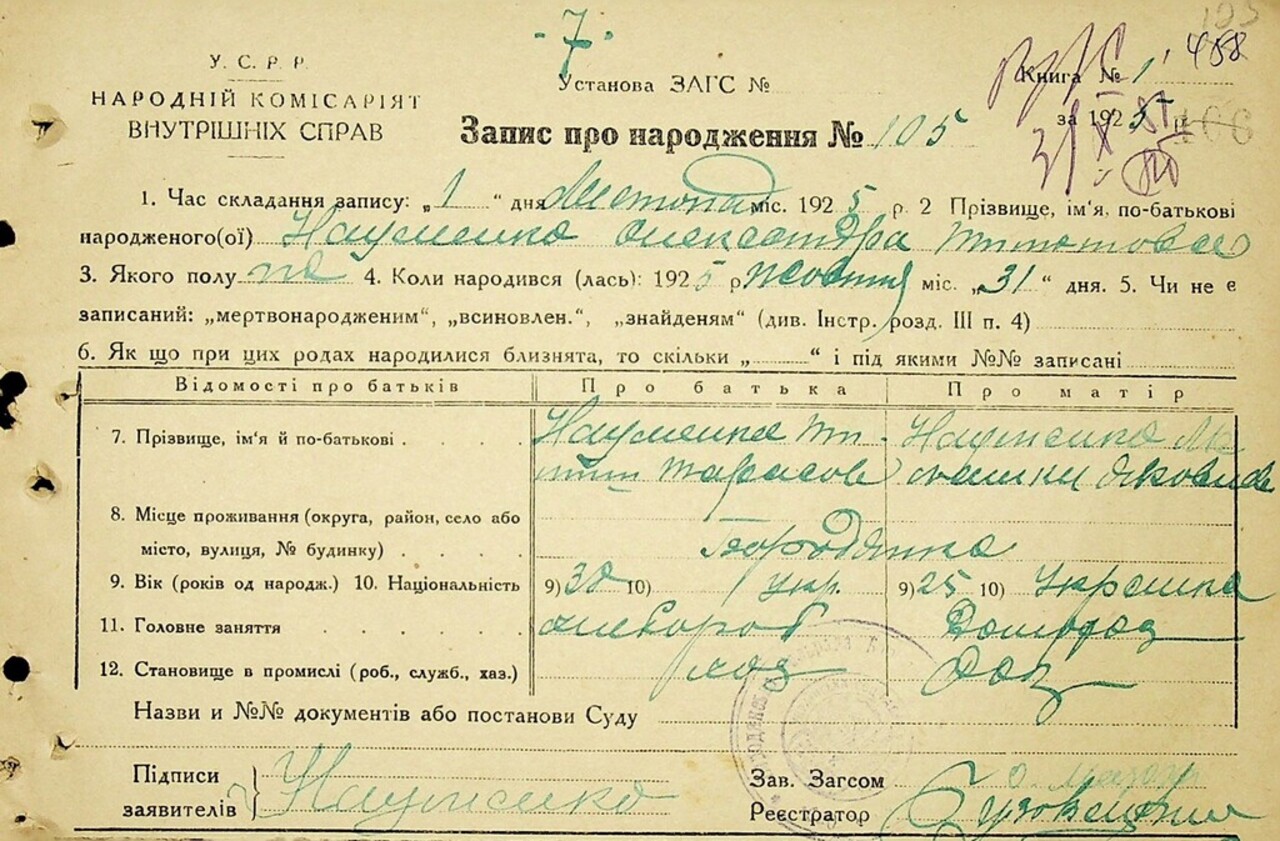 7
У. С. Р. Р.
НАРОДНІЙ КОМІСАРІЯТ
ВНУТРІШНІХ СПРАВ
Установа ЗАГС №
Книга № 1
за 1925 р.
Запис про народження № 105
1. Час складання запису: „1“ дня Листопад міс. 1925 р. 2 Прізвище, ім'я, по-батькові
народженого(ої) Науменко Олександра
3. Якого полу 4. Коли народився (лась): 1925 р Жовтня міс. „31“ дня. 5. Чи не є
записаний: „мертвонародженим“, „всиновлен.“, „знайденям“ (див. Інстр. розд. III п. 4)
6. Як що при цих родах народилися близнята, то скільки „ “ і під якими №№ записані
Відомості про батьків Про батька Про матір
7. Прізвище, ім'я й по-батькові Науменка Науменка
Тарасов
8. Місце проживання (округа, район, село або
місто, вулиця, № будинку) Бородянка
9. Вік (років од народж.) 10. Національність 9) 38 10) Укр. 9) 25 10) Українка
11. Головне заняття хлебороб Домогосп
12. Становище в промислі (роб., служб., хаз.)
Назви и №№ документів або постанови Суду
Підписи
заявителів Науменко
Зав. Загсом
Реєстратор